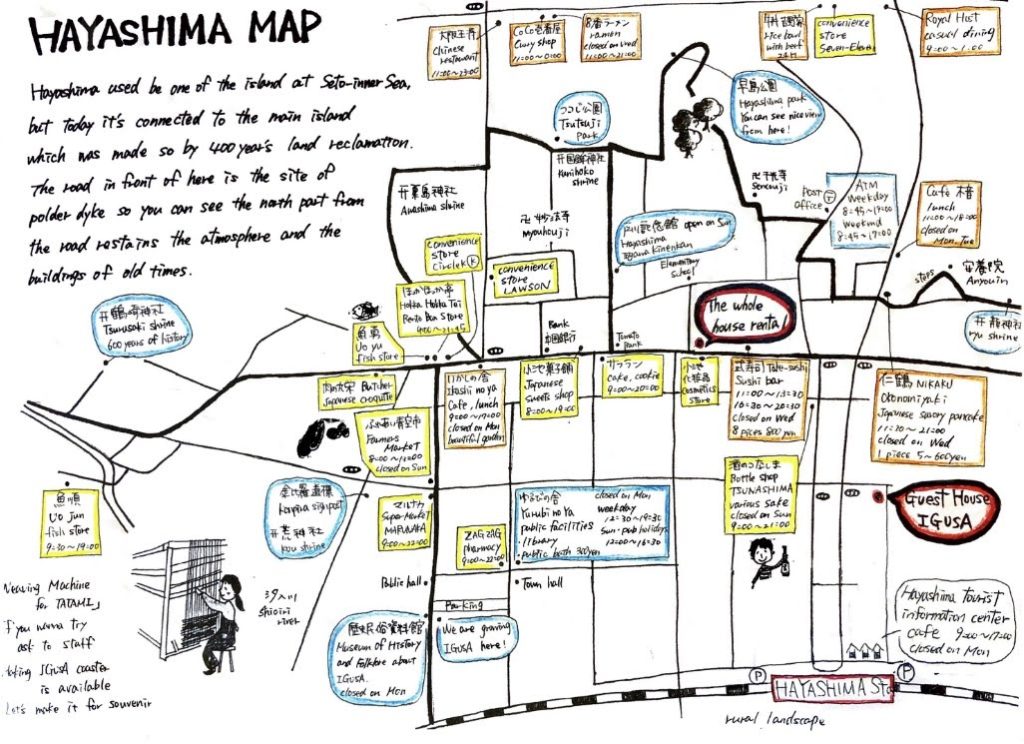 HAYASHIMA MAP
Hayashima used be one of the island at Seto-inner Sea,
but today it's connected to the main island
which was made so by 400 year's land reclamation.
The road in front of here is the site of
polder dyke so you can see the north part from
the road restains the atmosphere and the
buildings of old times.
大阪王将
Chinese
restaurant
11:00~23:00
CoCo壱番屋
Curry shop
11:00~0:00
8番ラーメン
ramen
closed on Wed
11:00~21:00
吉野家
rice bowl
with beef
convenience
store
Seven-Eleven
Royal Host
casual dining
9:00~1:00
つつじ公園
Tsutsuji
Park
早島公園
Hayashima park
You can see nice view
from here!
国鉾神社
Kunihoko
shrine
千光寺
Senkouji
POST
OFFICE
ATM
Weekday
8:45~19:00
Weekend
8:45~17:00
Cafe 木音
lunch
11:00~18:00
closed on
Mon. Tue
鶴崎神社
Tsurusaki shrine
600 years of history
妙法寺
myouhouji
convenience
store
Circle K
convenience
store
LAWSON
戸川記念館 open on Sun
Hayashima
Togawa Kinenkan
Elementary
School
steps
安養院
Anyouin
龍神社
ryu shrine
The whole
house rental
魚勇
Uo yu
fish store
ほかほか亭
Hokka Hokka Tei
Bento Box Store
Bank
中国銀行
Tomato
Bank
肉の大栄 Butcher
Japanese croquette
いかしの舎
Ikashi no ya
Cafe, lunch
9:00~17:00
closed on Mon
beautiful garden
小池菓子舗
Japanese
sweets shop
8:00~19:00
サララン
cake, cookie
9:00~20:00
小池
化粧品
cosmetics
store
武寿司 Take-sushi
Sushi bar
11:00~13:30
16:30~20:30
closed on Wed
8 pices 800 yen
仁鶴 NIKAKU
Okonomiyaki
Japanese savory pancake
11:30~21:00
closed on Wed
1 piece 5~600yen
ふれあい青空市
Farmers
Market
8:00~12:00
closed on Sun
金比羅道標
Konpira signpost
荒神社
kou shrine
マルナカ
Super Market
MARUNAKA
9:00~22:00
ZAG ZAG
pharmacy
9:00~22:00
ゆるびの舎
Yurubi no Ya
public facilities
・library
・public bath 300yen
closed on Mon
weekday
12:30~19:30
Sun・pub holidays
12:00~16:30
酒のつなしま
Bottle shop
TSUNASHIMA
various sake
closed on Sun
9:00~21:00
Guest House
IGUSA
魚順
Uo Jun
fish store
9:30~19:00
Weaving Machine
for TATAMI」
If you wanna try
ask to staff
taking IGUSA coaster
is available
Let's make it for souvenir
汐入川
Shioiri
river
Public hall
Town hall
Parking
We are growing
IGUSA here!
歴史民俗資料館
Museum of History
and Folklore about
IGUSA.
closed on Mon
Hayashima tourist
information center
cafe 9:00~17:00
closed on Mon
P
HAYASHIMA Sta
P
rural landscape